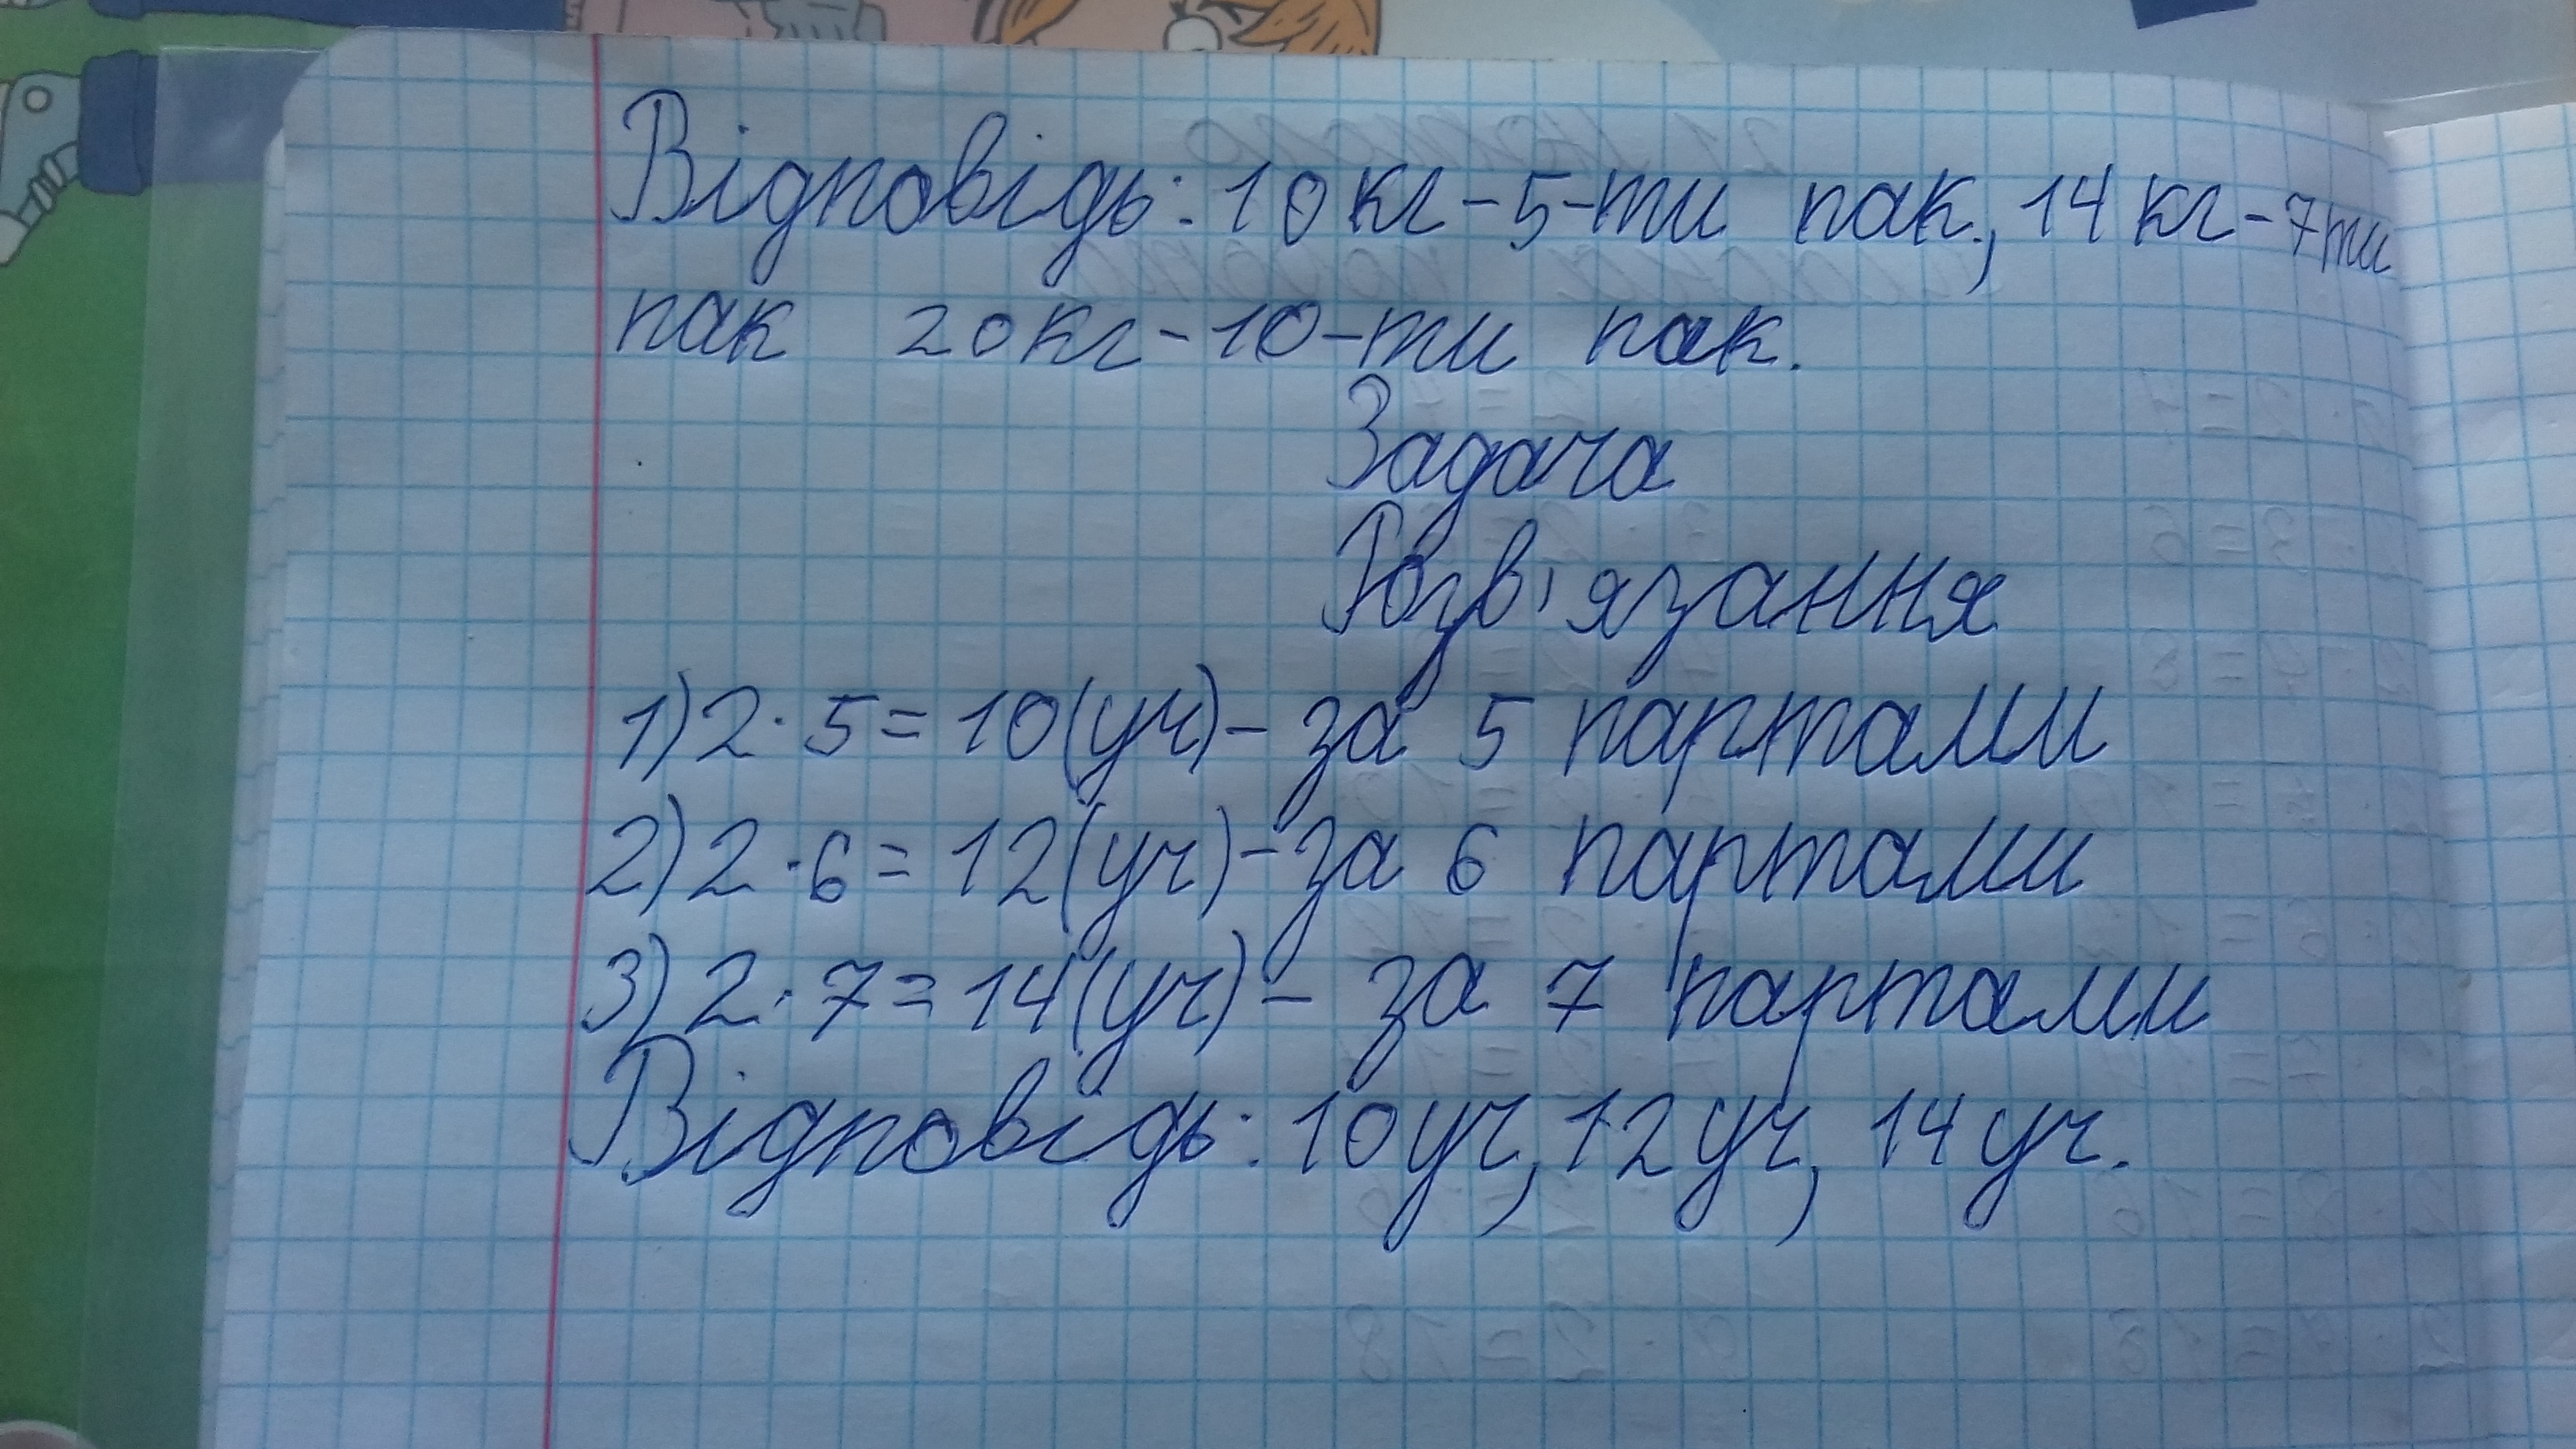 Відповідь: 10 кг - 5-ти пак., 14 кг - 7ти
пак 20кг - 10-ти пак.
Задача
Розв'язання
1) 2 · 5 = 10 (уч) - за 5 партами
2) 2 · 6 = 12 (уч) - за 6 партами
3) 2 · 7 = 14 (уч) - за 7 партами
Відповідь: 10 уч, 12 уч, 14 уч.